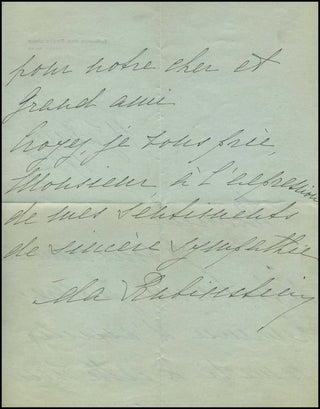 pour notre cher et
Grand ami
Croyez, je vous prie,
Monsieur à l'expression
de mes sentiments
de sincère sympathie
Ida Rubinstein